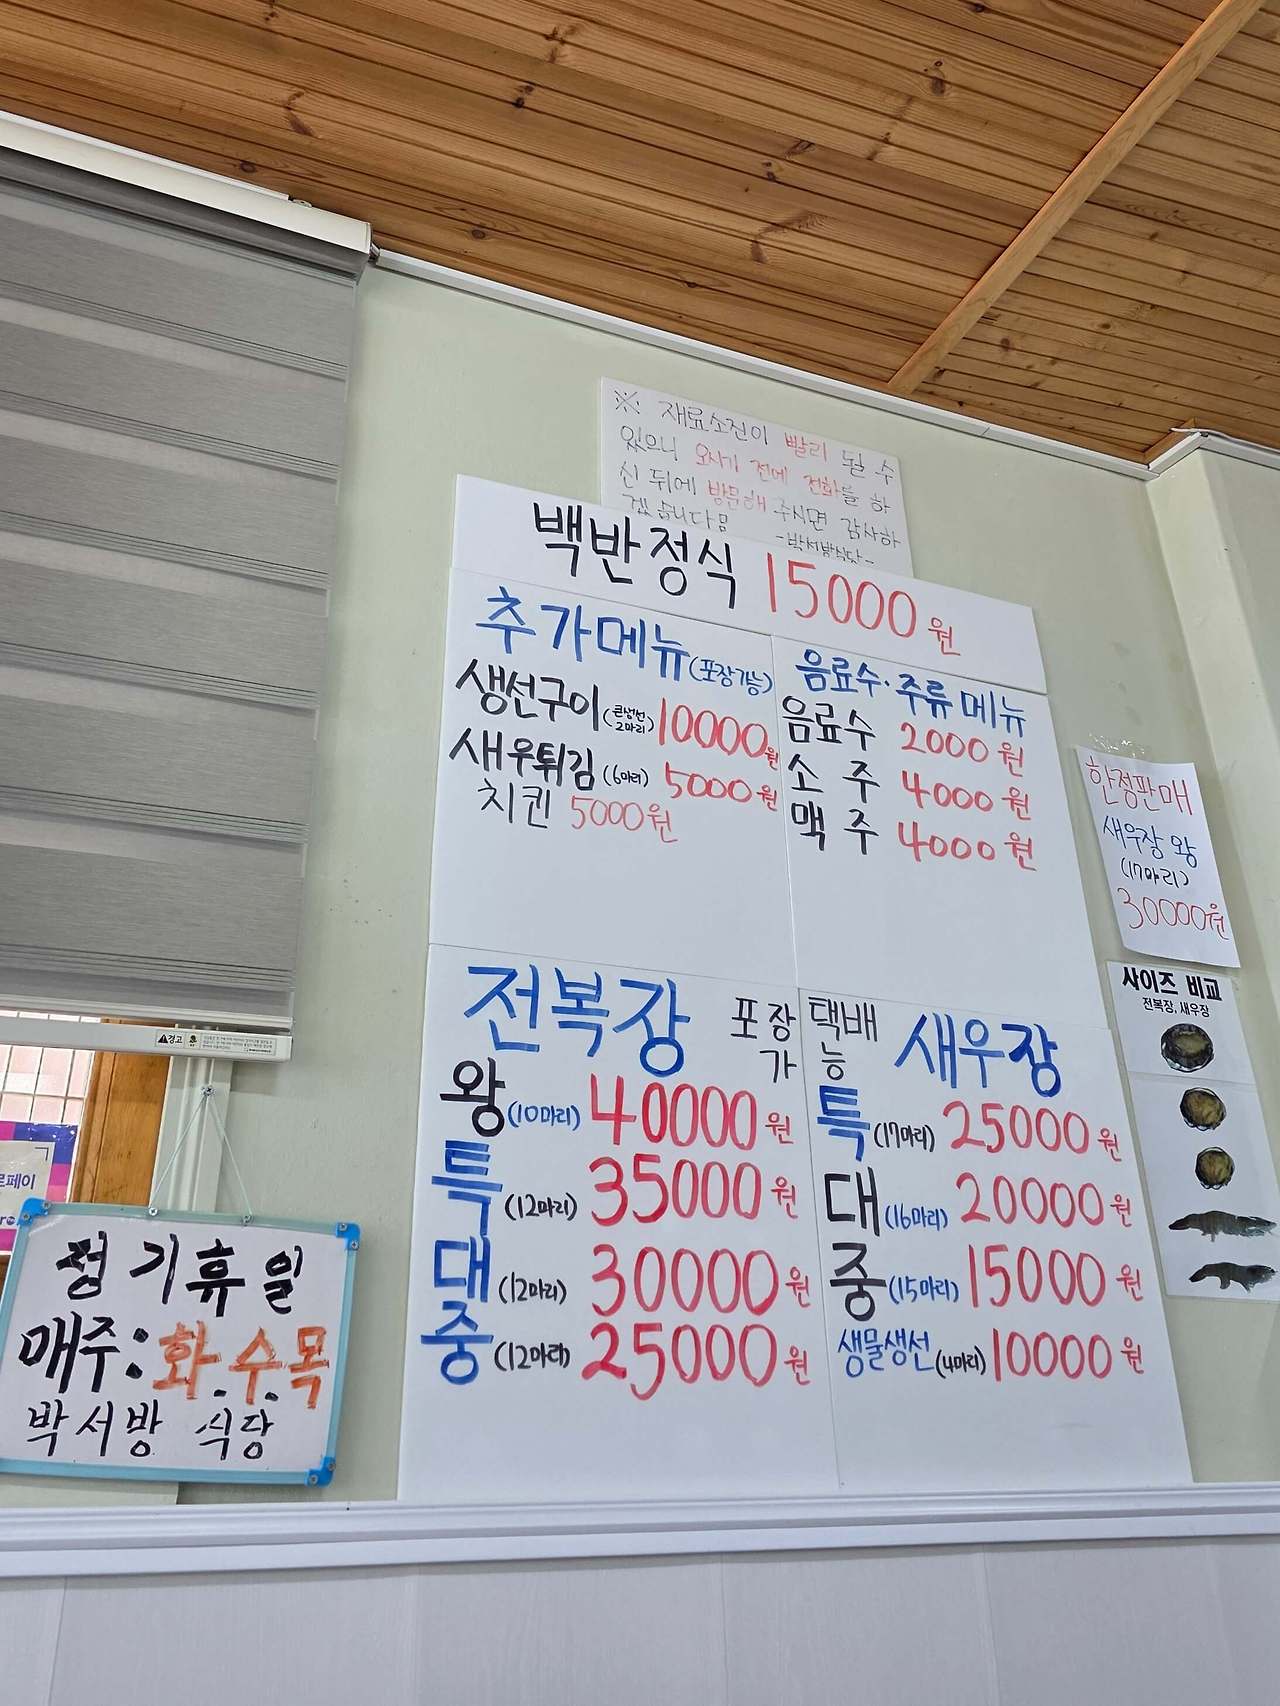 ※ 재료소진이 빨리 될 수
있으니 오시기 전에 전화를 하
신 뒤에 방문해 주시면 감사하
겠습니다
-박서방식당-
백반정식 15000원
추가메뉴(포장가능)
생선구이(큰생선 2마리) 10000원
새우튀김(6마리) 5000원
치킨 5000원
음료수·주류 메뉴
음료수 2000원
소주 4000원
맥주 4000원
한정판매
새우장 왕
(17마리)
30000원
사이즈 비교
전복장, 새우장
포장 택배
가능
전복장
왕(10마리) 40000원
특(12마리) 35000원
대(12마리) 30000원
중(12마리) 25000원
새우장
특(17마리) 25000원
대(16마리) 20000원
중(15마리) 15000원
생물생선(4마리) 10000원
경고
로페이
정기휴일
매주:화.수.목
박서방 식당